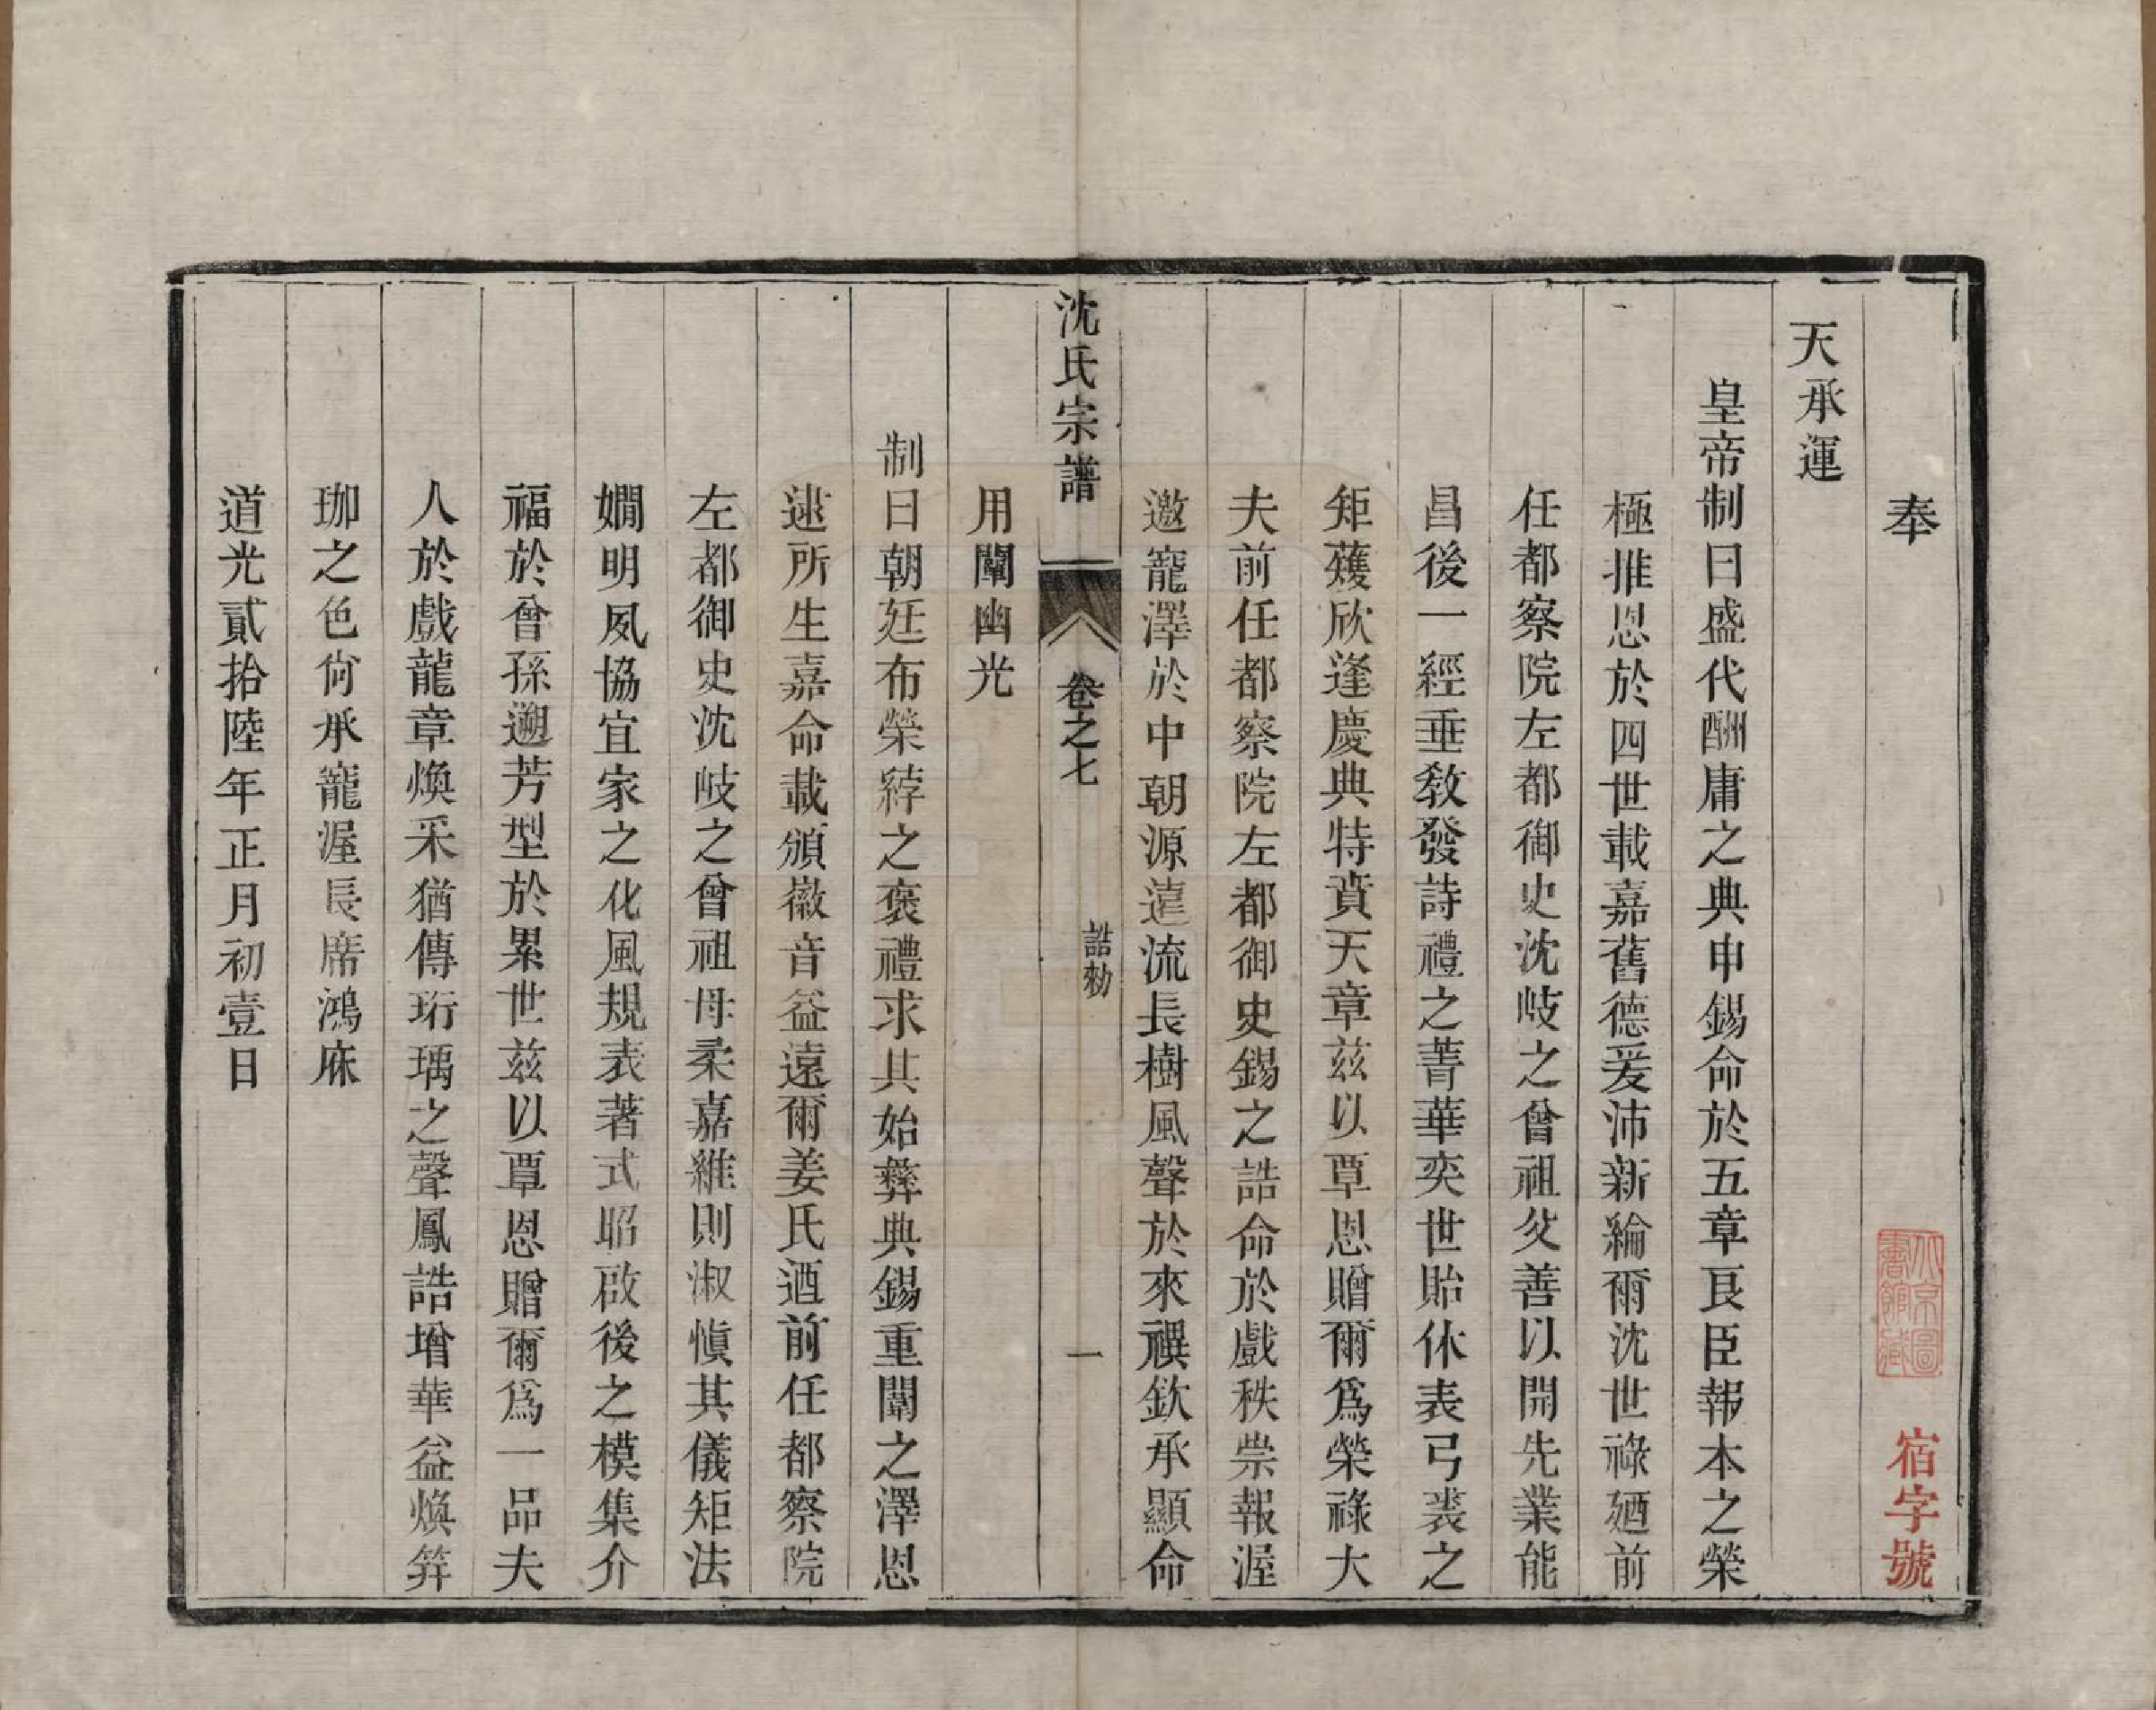 奉
天承運
皇帝制曰盛代酬庸之典申錫命於五章良臣報本之榮
極推恩於四世載嘉舊德爰沛新綸爾沈世祿廼前
任都察院左都御史沈岐之曾祖父善以開先業能
昌後一經垂教發詩禮之菁華奕世貽休表弓裘之
矩蒦欣逢慶典特賁天章茲以覃恩贈爾爲榮祿大
夫前任都察院左都御史錫之誥命於戲秩崇報渥
邀寵澤於中朝源遠流長樹風聲於來禩欽承顯命
沈氏宗譜
卷之七
誥勑
一
用闡幽光
制曰朝廷布榮綍之褒禮求其始彝典錫重闈之澤恩
逮所生嘉命載頒徽音益遠爾姜氏迺前任都察院
左都御史沈岐之曾祖母柔嘉維則淑愼其儀矩法
嫺明夙協宜家之化風規表著式昭啟後之模集介
福於曾孫遡芳型於累世茲以覃恩贈爾爲一品夫
人於戲龍章煥采猶傳珩瑀之聲鳳誥增華益煥笄
珈之色尙承寵渥長席鴻庥
道光貳拾陸年正月初壹日
宿字號